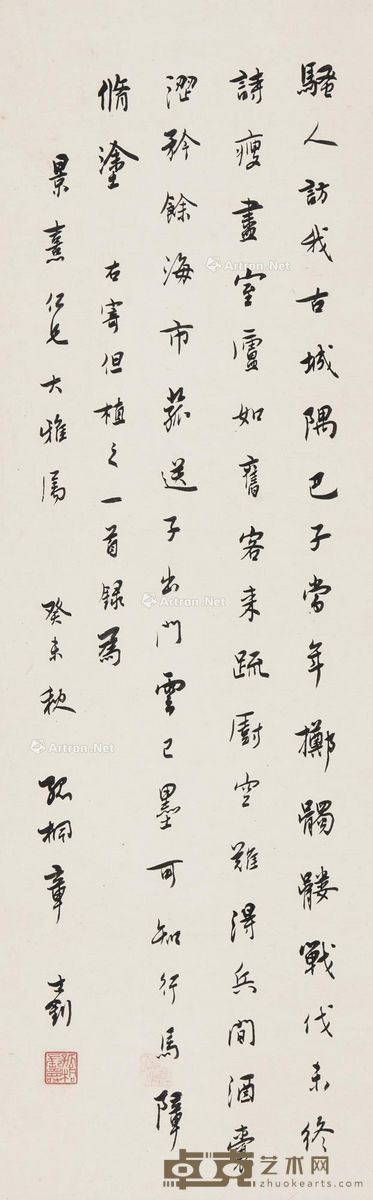 騷人訪我古城隅巴子當年擲髑髏戰伐未終
詩瘦盡室廬如舊客来疏廚空難得兵間酒囊
澀矜餘海市菰送子出門雲已墨可知行馬障
脩塗 右寄但植之一首録爲
景熹仁兄大雅屬 癸未秋 孤桐章士釗
Artron.Net
Artron.Net
Artron.Net
卓克艺术网
zhuokearts.com